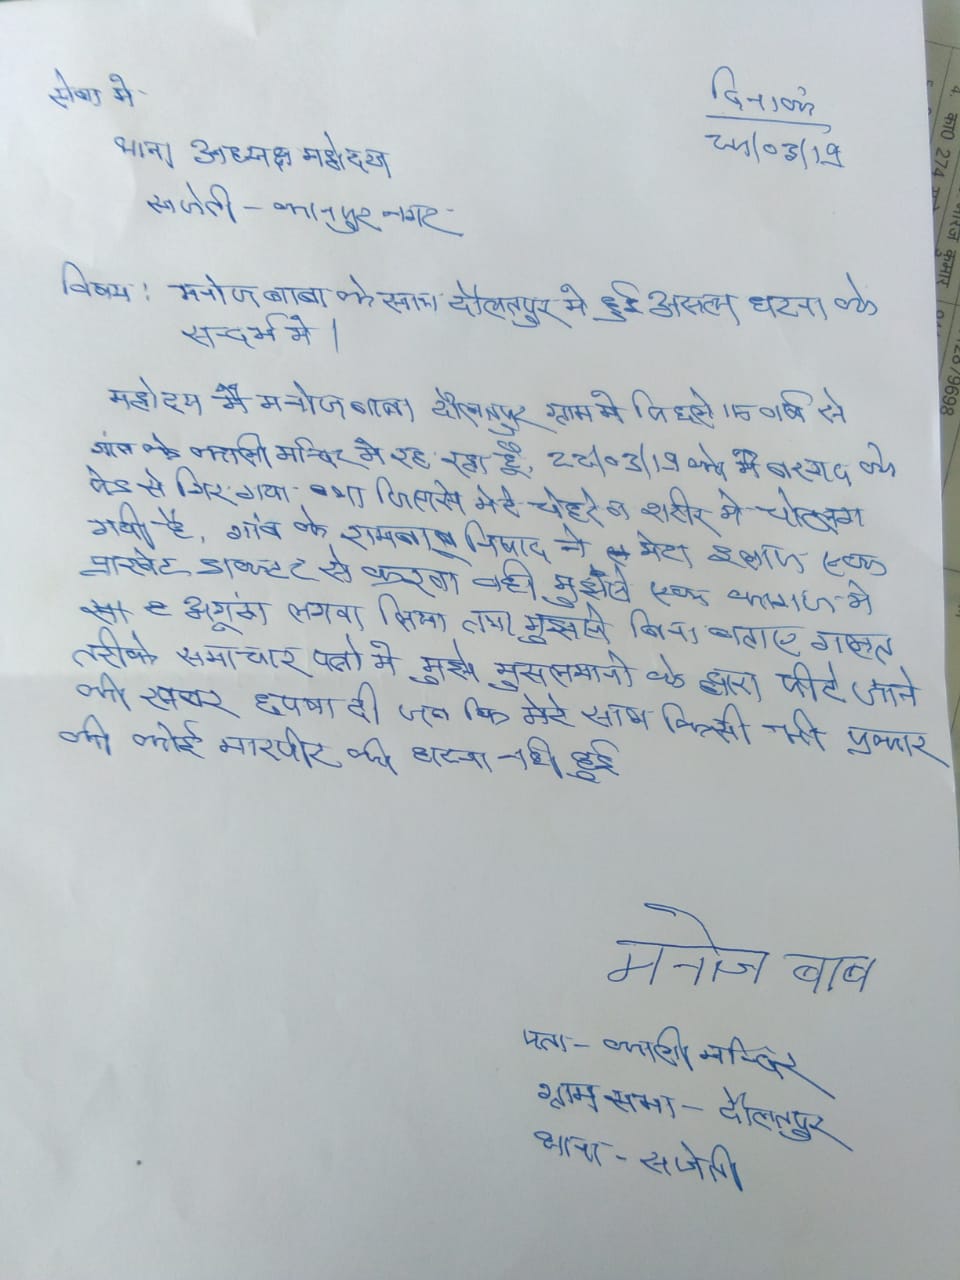 सेवा मे
दिनांक
थाना अध्यक्ष महोदय
/03/19
सजेती - कानपुर नगर
विषय: मनोज बाबा के साथ दौलतपुर मे हुई असल घटना के
सन्दर्भ मे।
महोदय मै मनोज बाबा दौलतपुर ग्राम मे पिछले 15 वर्ष से
गांव के काली मन्दिर मे रह रहा हूँ, 22/03/19 को मै बरगद के
पेड से गिर गया था जिससे मेरे चेहरे व शरीर मे चोट लग
गयी है, गांव के रामबाबू निषाद ने मेरा इलाज एक
प्राइवेट डाक्टर से करवा वही मुझसे एक कागज मे
अगूंठा लगवा लिया तथा मुझसे बिना बताए गलत
तरीके समाचार पत्रो मे मुझे मुसलमानो के द्वारा पीटे जाने
की खबर छपवा दी जब कि मेरे साथ किसी भी प्रकार
की कोई मारपीट की घटना नही हुई
मनोज बाब
पता - काली मन्दिर
ग्राम सभा - दौलतपुर
थाना - सजेती
4. का0 274